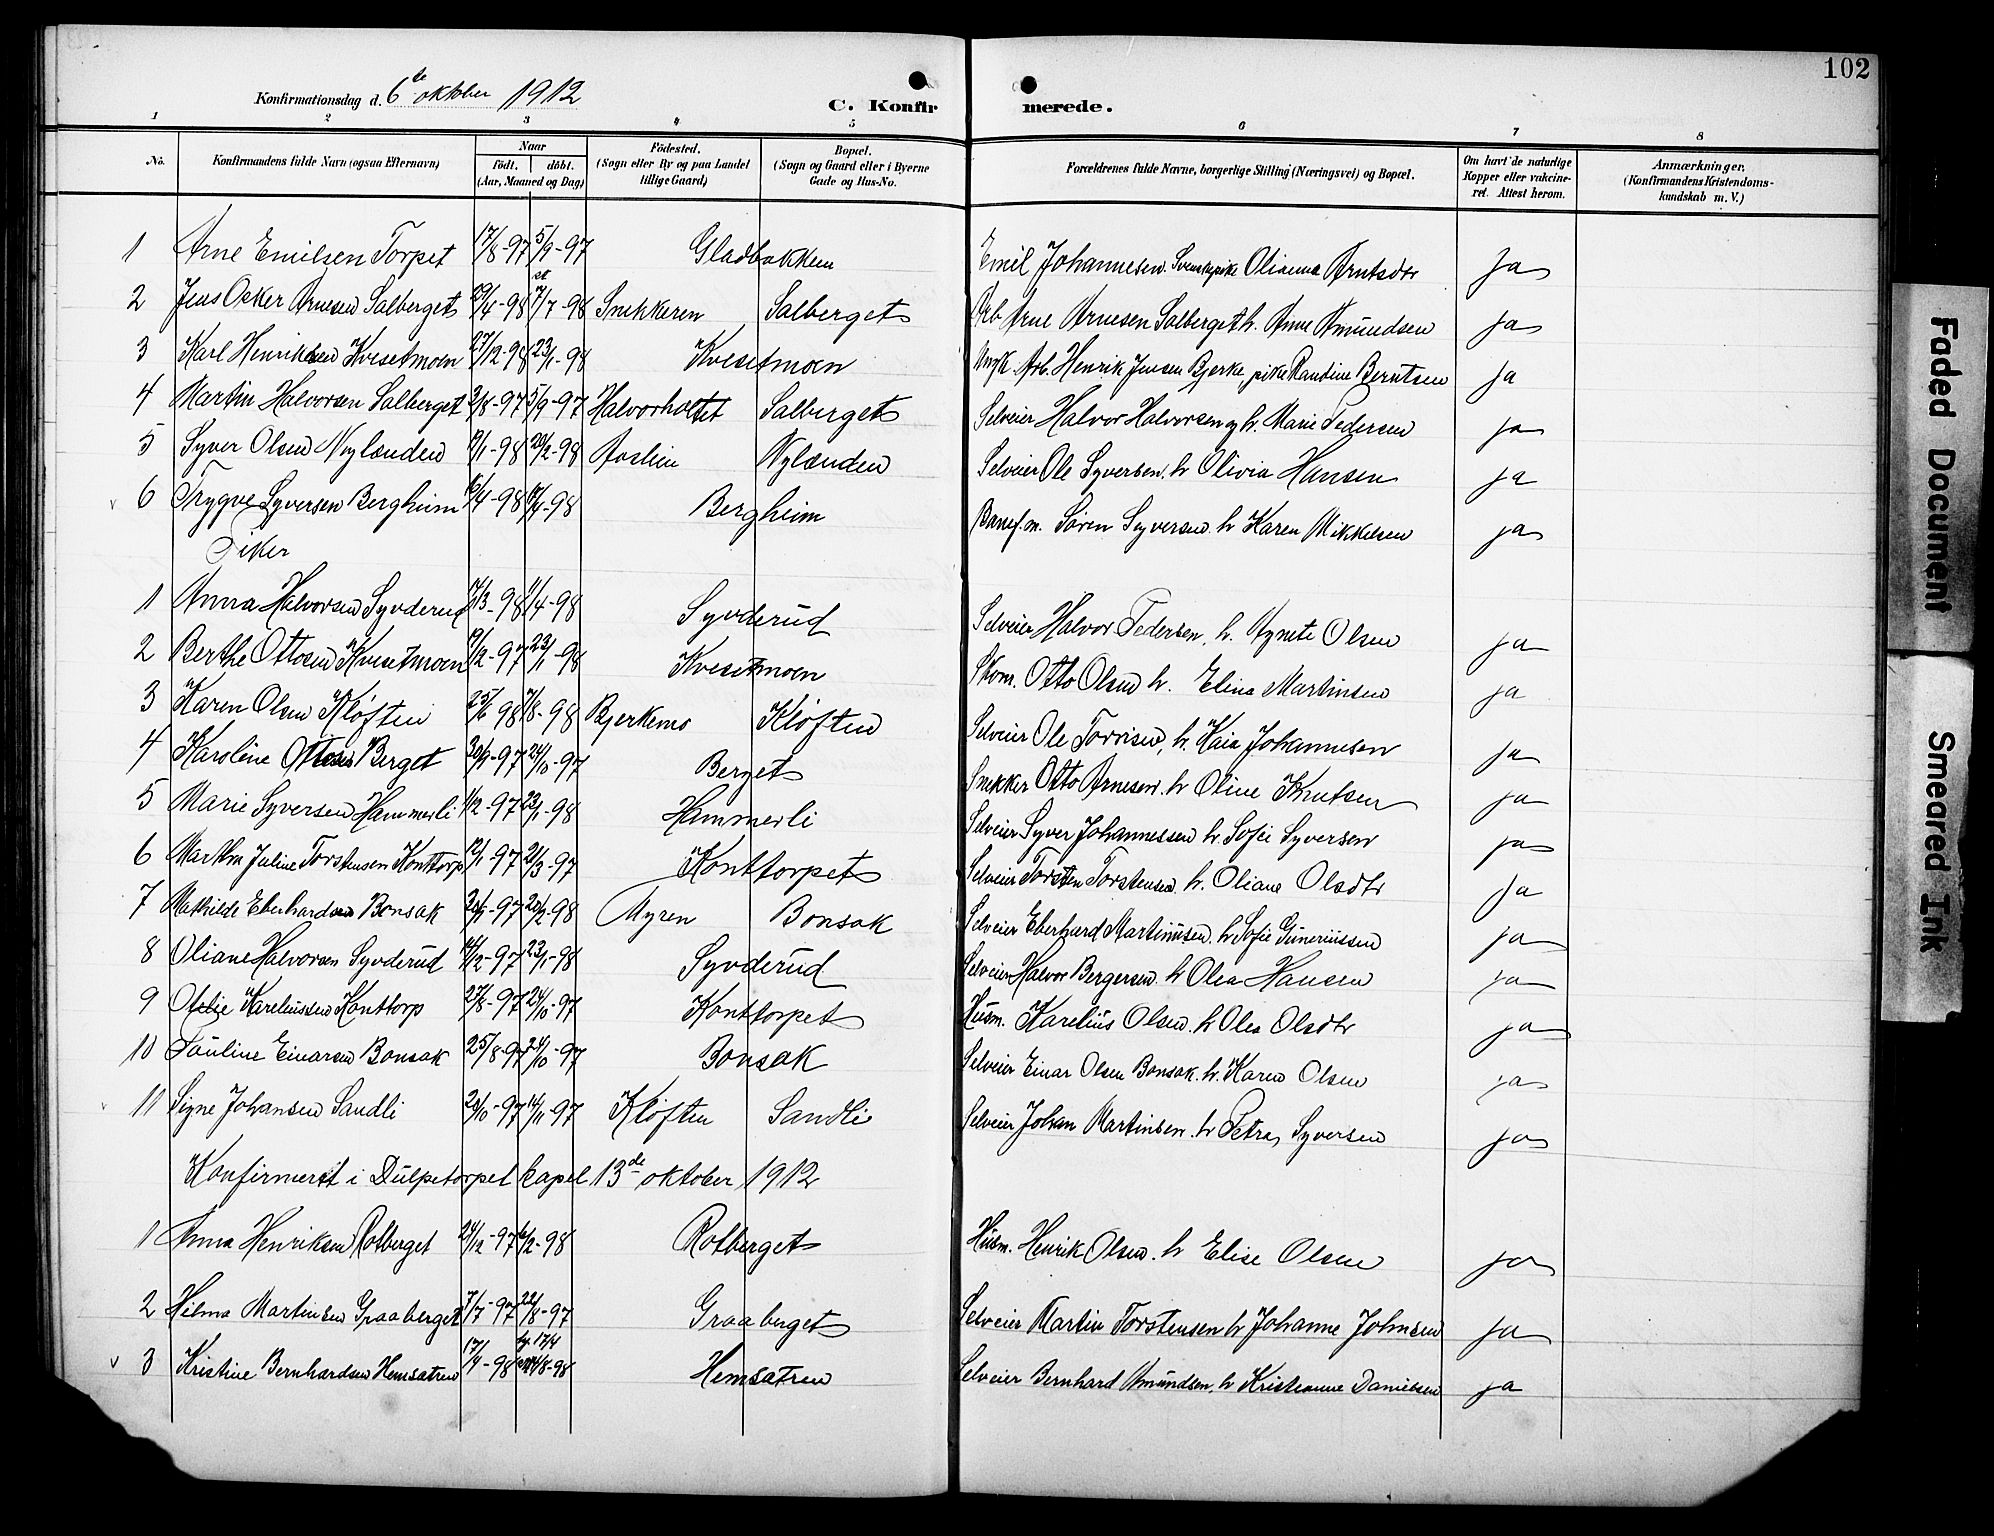 102
Konfirmationsdag d. 6te oktober 1912
C. Konfirmerede.
1 2 3 4 5 6 7 8
No. Konfirmandens fulde Navn (ogsaa Efternavn) Naar født. døbt. (Aar, Maaned og Dag) Fødested. (Sogn eller By og paa Landet tillige Gaard) Bopæl. (Sogn og Gaard eller i Byerne Gade og Hus-No. Forældrenes fulde Navne, borgerlige Stilling (Næringsvei) og Bopæl. Om havt de naturlige Kopper eller vakcineret. Attest herom. Anmærkninger. (Konfirmandens Kristendomskundskab m. V.)
1 Arne Emilsen Torpet 17/8-97 5/9-97 Gladbakken Emil Johannesen. Olianna Arntsdtr ja
2 Jens Osker Arnesen Salberget 29/4-98 7/7-98 Snekkeren Salberget Arb Arne Arnesen Salberget h. Anne Amundsen ja
3 Karl Henriksen Kvesetmoen 27/12-98 23/1-98 Kvesetmoen Ungk. Arb. Henrik Jensen Bjerke, pike Randine Berntsen ja
4 Martin Halvorsen Salberget 2/8-97 5/9-97 Halvorholtet Salberget Selveier Halvor Halvorsen og h. Marie Pedersen ja
5 Syver Olsen Nylænden 12/1-98 20/2-98 Aaslien Nylænden Selveier Ole Syversen. h Olivia Hansen ja
v 6 Trygve Syversen Bergheim 10/4-98 17/4-98 Bergheim Banef.m. Søren Syversen. h Karen Mikkelsen ja
Piker
1 Anna Halvorsen Syvderud 17/3-98 11/4-98 Syvderud Selveier Halvor Pedersen, h. Agnete Olsen ja
2 Berthe Ottosen Kvesetmoen 19/12-97 23/1-98 Kvesetmoen Skom. Otto Olsen h. Elina Martinsen ja
3 Karen Olsen Kløften 25/6 98 7/8-98 Bjerkemo Kløften Selveier Ole Torvisen, h. Kaia Johannesen ja
4 Karoline Ottesen Berget 30/9-97 24/10-97 Berget Snekker Otto Arnesen. h Oline Knutsen ja
5 Marie Syversen Hammerli 1/12-97 23/1-98 Hammerli Selveier Syver Johannessen h. Sofie Syversen ja
6 Martha Juline Torstensen Konttorp 12/1-97 21/3-97 Konttorpet Selveier Torsten Torstensen h. Oliane Olsdtr ja
7 Mathilde Eberhardsen Bonsak 20/11-97 20/2-98 Myren Bonsak Selveier Eberhard Martinusen. h Sofie Guneriussen ja
8 Oliane Halvorsen Syvderud 14/12-97 23/1-98 Syvderud Selveier Halvor Bergersen. h Olea Hansen ja
9 Otelie Kareliussen Konttorp 27/8-97 24/10-97 Konttorpet Husm. Karelius Olsen. h Olea Olsdtr ja
10 Pauline Einarsen Bonsak 25/8-97 24/10-97 Bonsak Selveier Einar Olsen Bonsak. h. Karen Olsen ja
v 11 Signe Johansen Sandli 20/10-97 14/11-97 Kløften Sandlie Selveier Johan Martinsen. h Petra Syversen ja
Konfirmert i Dulpetorpet kapel 13de oktober 1912
1 Anna Henriksen Rotberget 24/12-97 6/2-98 Rotberget Husm. Henrik Olsen. h Elise Olsen ja
2 Hilma Martinsen Graaberget 7/7-97 22/8-97 Graaberget Selveier Martin Torstensen h Johanne Johnsen ja
v 3 Kristine Bernhardsen Hemsætren 17/4-98 17/4 14/8-98 Hemsætren Selveier Bernhard Amundsen, h Kristianne Danielsen ja
Faded Document
Smeared Ink